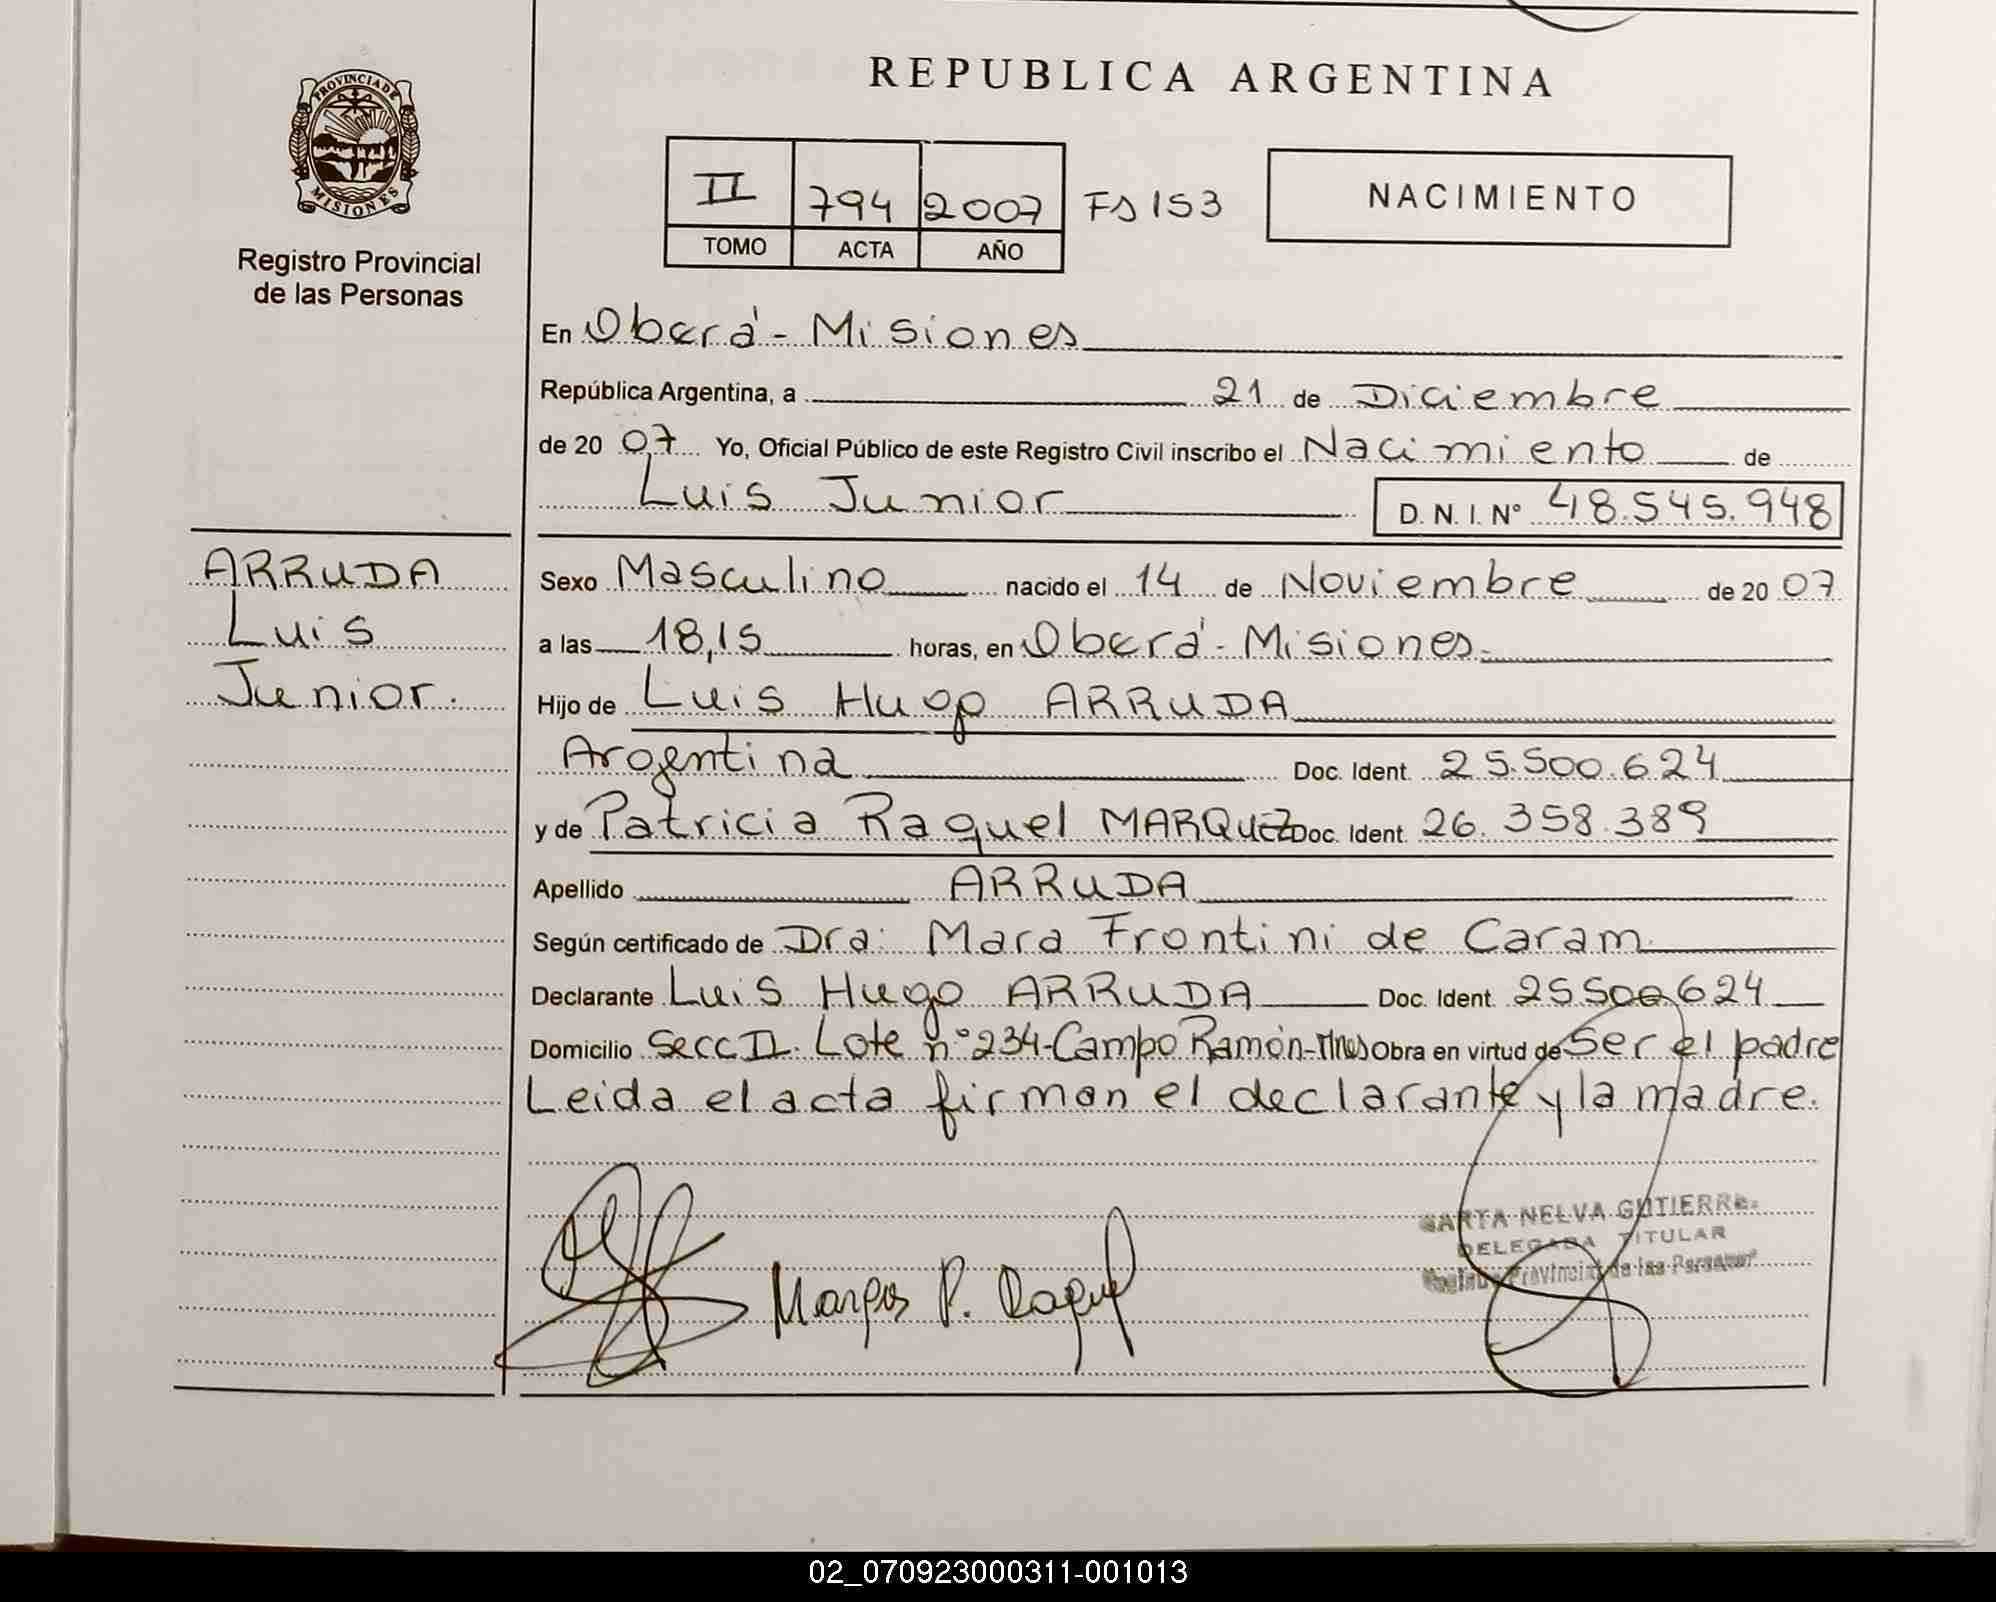 REPUBLICA ARGENTINA
PROVINCIA DE
MISIONES
Registro Provincial
de las Personas
II 794 2007 FS 153
TOMO ACTA AÑO
NACIMIENTO
En Oberá - Misiones
República Argentina, a 21 de Diciembre
de 20 07 Yo, Oficial Público de este Registro Civil inscribo el Nacimiento de
Luis Junior D. N. I. Nº 48.545.948
ARRUDA
Luis
Junior.
Sexo Masculino nacido el 14 de Noviembre de 20 07
a las 18,15 horas, en Oberá - Misiones.
Hijo de Luis Hugo ARRUDA
Argentina Doc. Ident. 25.500.624
y de Patricia Raquel MARQUEZ Doc. Ident. 26.358.389
Apellido ARRUDA
Según certificado de Dra: Mara Frontini de Caram
Declarante Luis Hugo ARRUDA Doc. Ident. 25500624
Domicilio Secc II. Lote n° 234-Campo Ramón-Mnes Obra en virtud de Ser el padre
Leida el acta firman el declarante y la madre.
NELVA GUTIERRE
DELEGADA TITULAR
Provincial de las Personas
P. Raquel
02_070923000311-001013